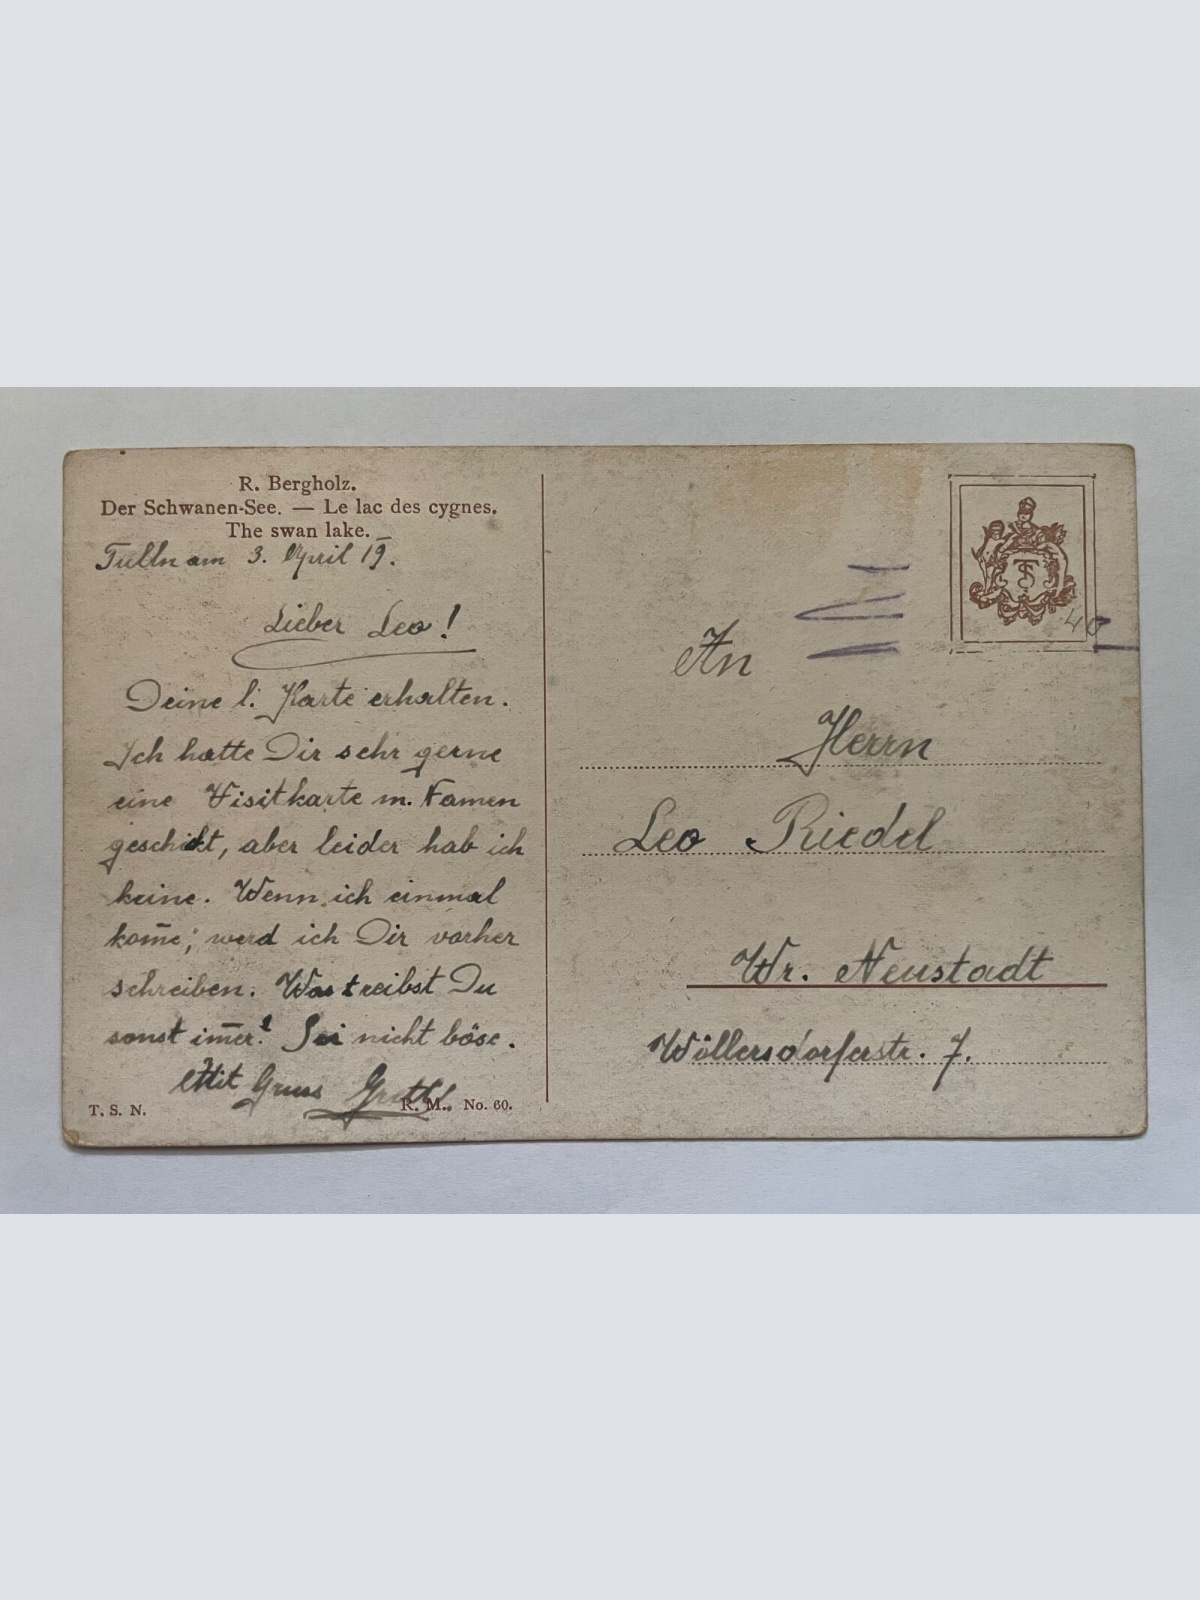 R. Bergholz.
Der Schwanen-See. — Le lac des cygnes.
The swan lake.
Tulln am 3. April 19.
Lieber Leo!
Deine l. Karte erhalten.
Ich hatte Dir sehr gerne
eine Visitkarte m. Namen
geschikt, aber leider hab ich
keine. Wenn ich einmal
kom̄e, werd ich Dir vorher
schreiben. Was treibst Du
sonst im̄er? Sei nicht böse.
Mit Gruss
T. S. N.
R. M. No. 60.
TS
40
An
Herrn
Leo Riedel
Wr. Neustadt
Wöllersdorferstr. 7.